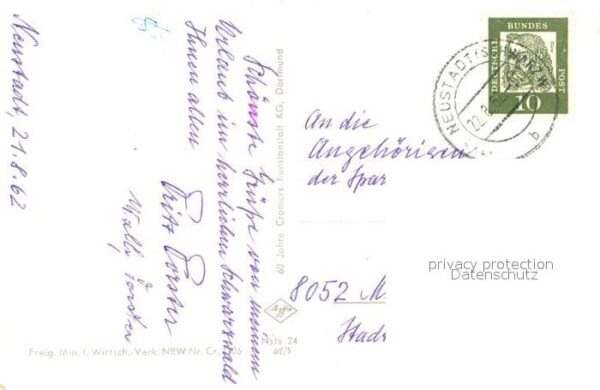 Neustadt, 21.8.62
Schönste Grüße von meinem
Urlaub im herrlichen Schwarzwald
Ihnen allen
Fritz Forster
Wally Forster
60 Jahre Cramers Kunstanstalt KG, Dortmund
An die
Angehörigen
der Spar
8052 M
Stadt
DEUTSCHE BUNDES POST
10
NEUSTADT (SCHWARZW)
b
privacy protection
Datenschutz
Agfa
Nsts 24
62/5
Freig. Min. f. Wirtsch.-Verk. NRW Nr. Cr.